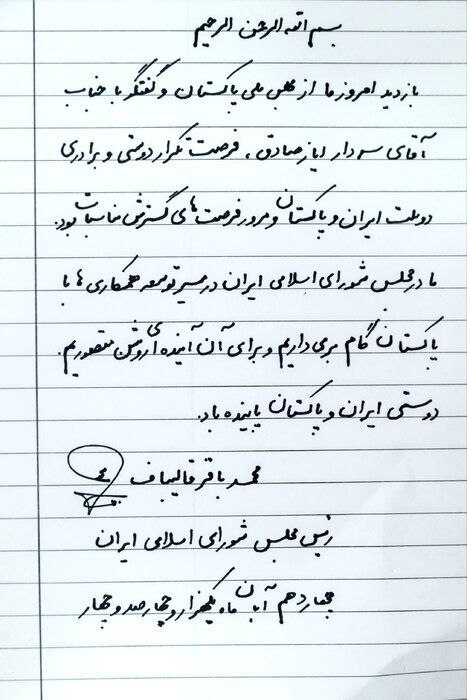 بسم الله الرحمن الرحیم
بازدید امروز ما از مجلس ملی پاکستان و گفتگو با جناب
آقای سردار ایاز صادق، فرصت تکرار دوستی و برادری
دو ملت ایران و پاکستان و مرور فرصت‌های گسترش مناسبات بود.
ما در مجلس شورای اسلامی ایران در مسیر توسعه همکاری ها با
پاکستان گام برمی داریم و برای آن آینده‌ای روشن متصوریم.
دوستی ایران و پاکستان پاینده باد.
محمد باقر قالیباف
رئیس مجلس شورای اسلامی ایران
چهاردهم آبان ماه یکهزار و چهارصد و چهار